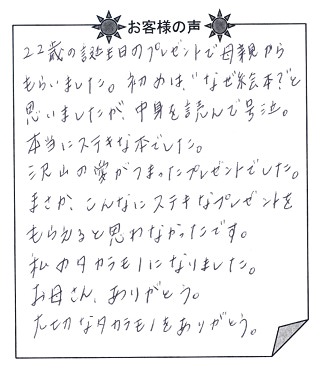 お客様の声
22歳の誕生日のプレゼントで母親から
もらいました。初めは、"なぜ絵本?"と
思いましたが、中身を読んで号泣。
本当にステキな本でした。
沢山の愛がつまったプレゼントでした。
まさか、こんなにステキなプレゼントを
もらえると思わなかったです。
私のタカラモノになりました。
お母さん、ありがとう。
大切なタカラモノをありがとう。